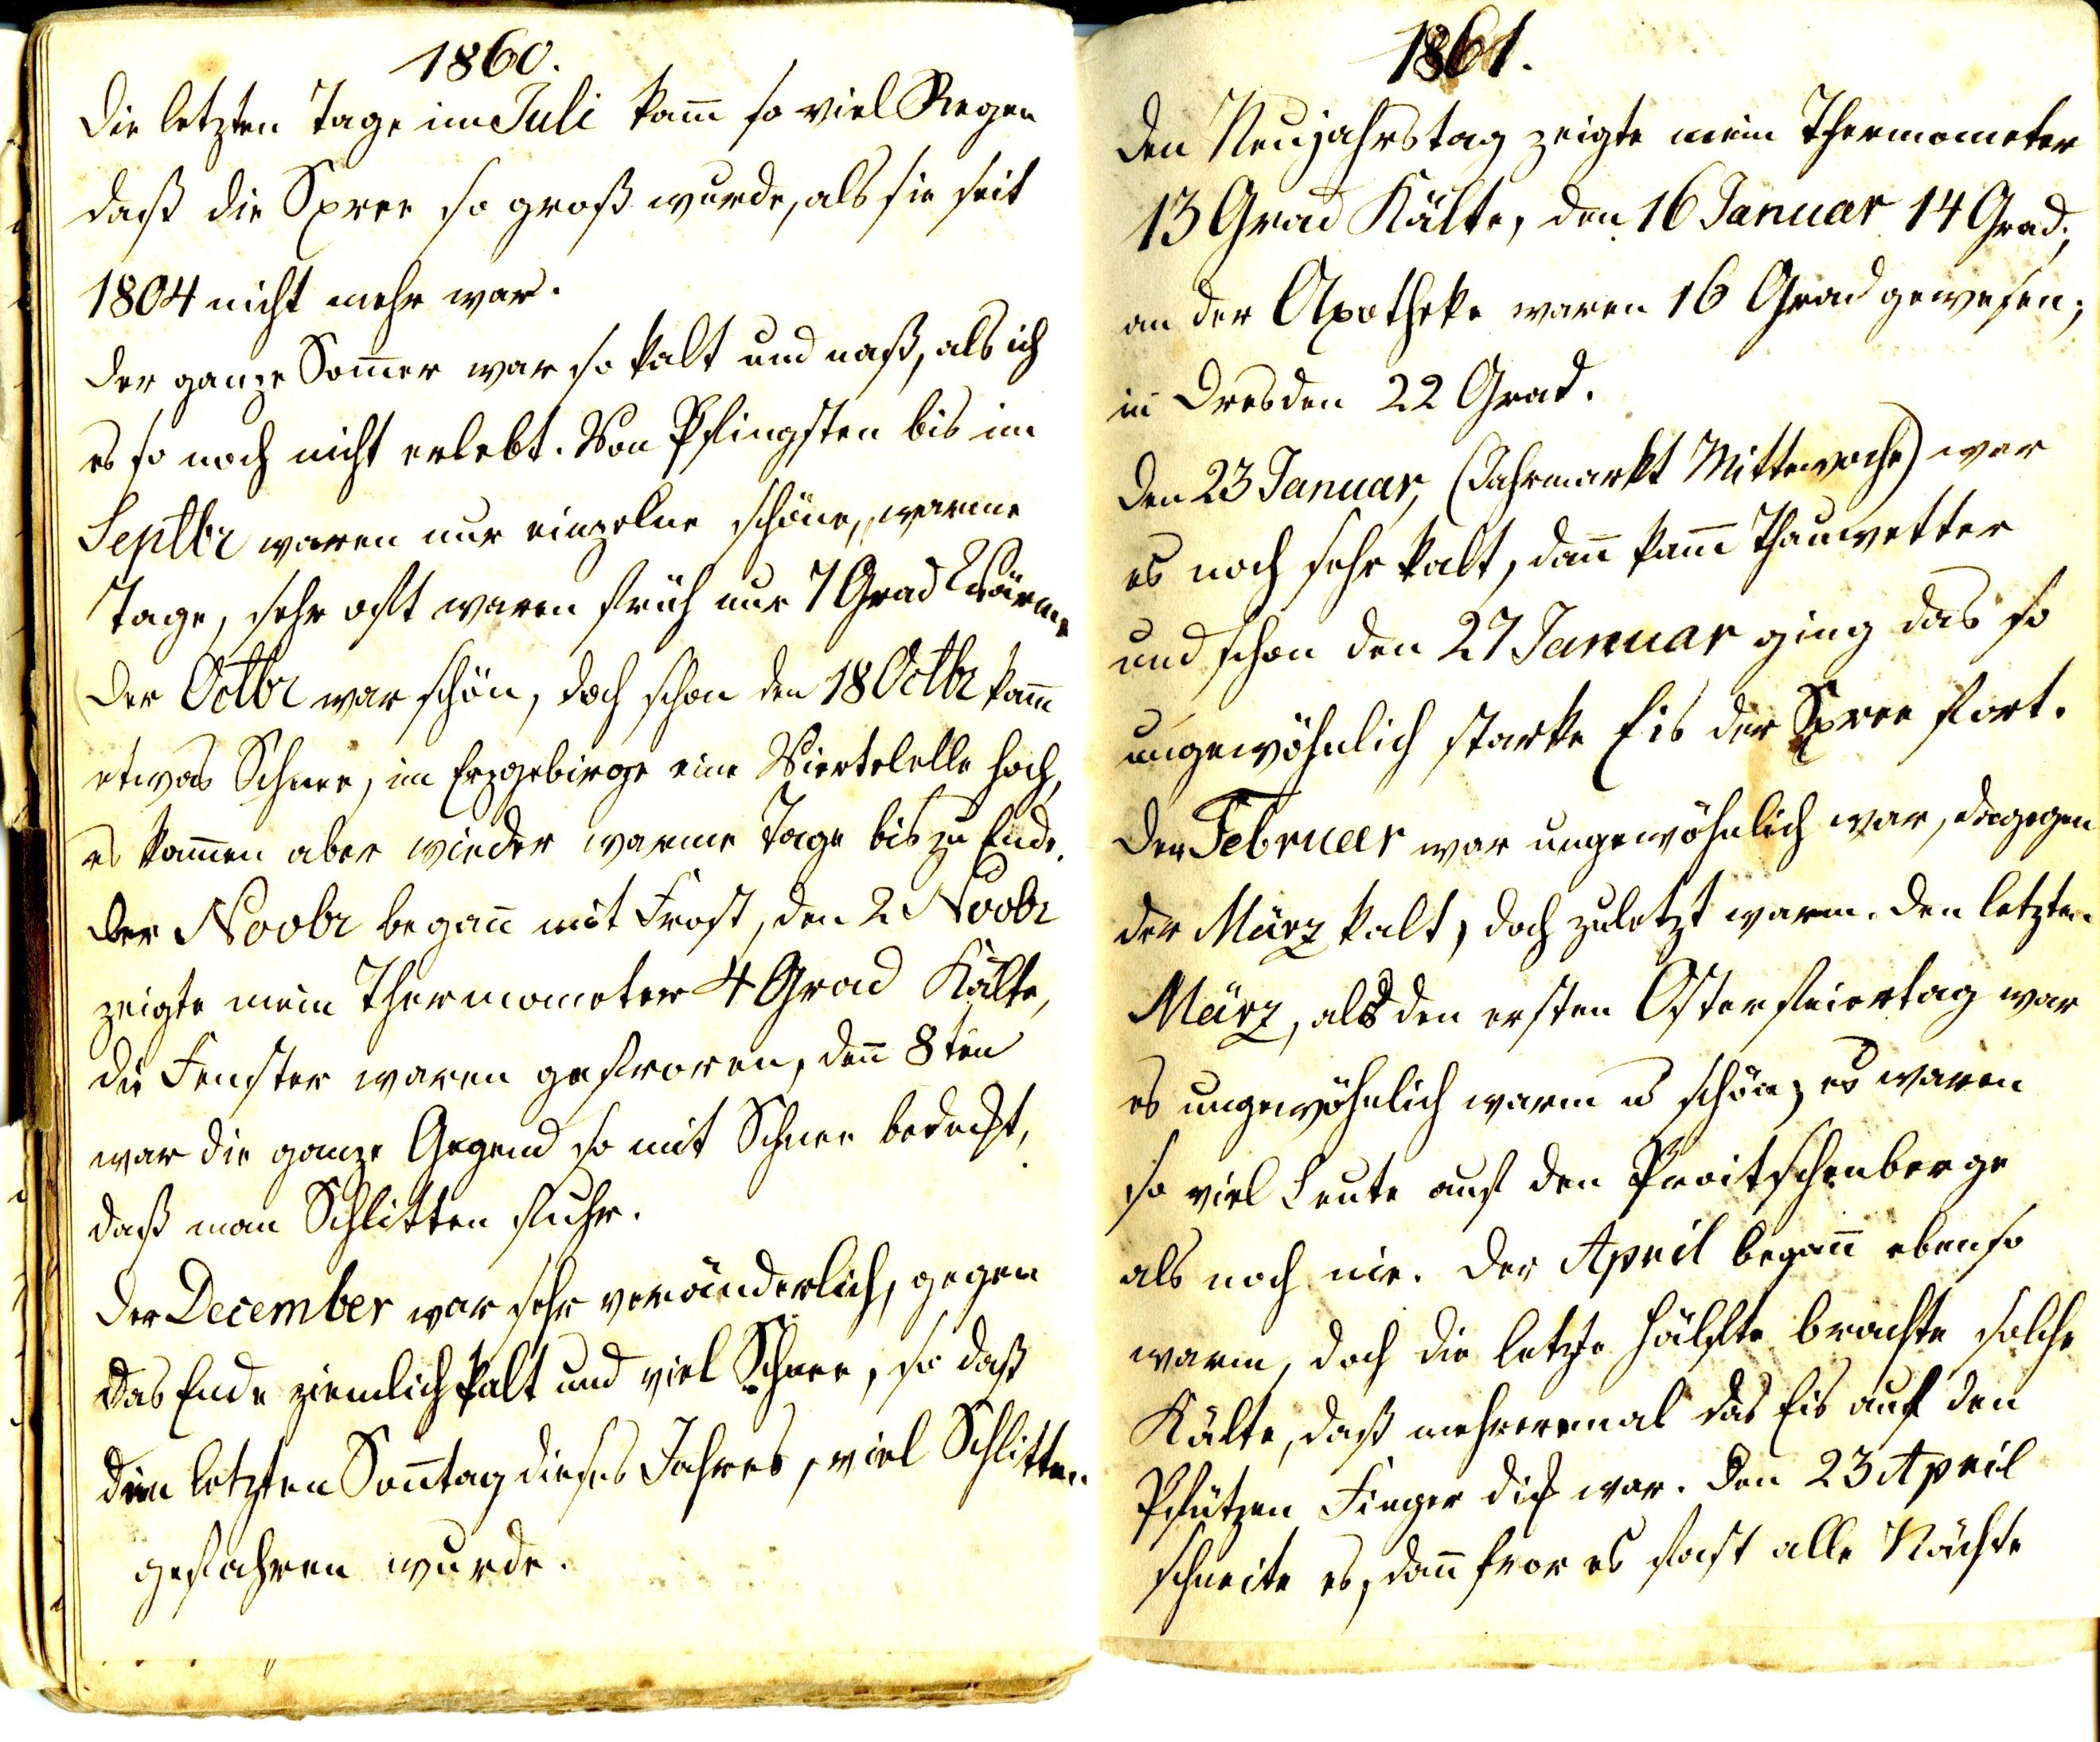 1860.
Die letzten Tage im Juli kam̅ so viel Regen
daß die Spree so groß wurde, als sie seit
1804 nicht mehr war.
Der ganze Som̅er war so kalt und naß, als ich
es so noch nicht erlebt. Von Pfingsten bis im
Septbr waren nur einzelne schöne, warme
Tage, sehr oft waren früh nur 7 Grad Wärme
Der Octbr war schön, doch schon den 18 Octbr kam̅
etwas Schnee, im Erzgebirge eine Viertelelle hoch,
es kam̅en aber wieder warme Tage bis zu Ende.
Der Novbr began̅ mit Frost, den 2 Novbr
zeigte mein Thermometer 4 Grad Kälte,
die Fenster waren gefroren, den̅ 8ten
war die ganze Gegend so mit Schnee bedeckt,
daß man Schlitten fuhr.
Der December war sehr veränderlich, gegen
das Ende ziemlich kalt und viel Schnee, so daß
den letzten Son̅tag dieses Jahres, viel Schlitten
gefahren wurde.
1861.
Den Neujahrstag zeigte mein Thermometer
13 Grad Kälte, den 16 Januar 14 Grad;
an der Apotheke waren 16 Grad gewesen;
in Dresden 22 Grad.
Den 23 Januar, (Jahrmarkt Mittewoche) war
es noch sehr kalt, dan̅ kam̅ Thauwetter
und schon den 27 Januar ging das so
ungewöhnlich starke Eis der Spree fort.
Der Februar war ungewöhnlich war, dagegen
der März kalt, doch zuletzt warm. Den letzten
März, als den ersten Osterfeiertag war
es ungewöhnlich warm u schön; es waren
so viel Leute auf den Proitschenberge
als noch nie. Der April began̅ ebenso
warm, doch die letzte Hälfte brachte solche
Kälte, daß mehreremal das Eis auf den
Pfützen Finger dick war. Den 23 April
schneite es, dan̅ fror es fast alle Nächte